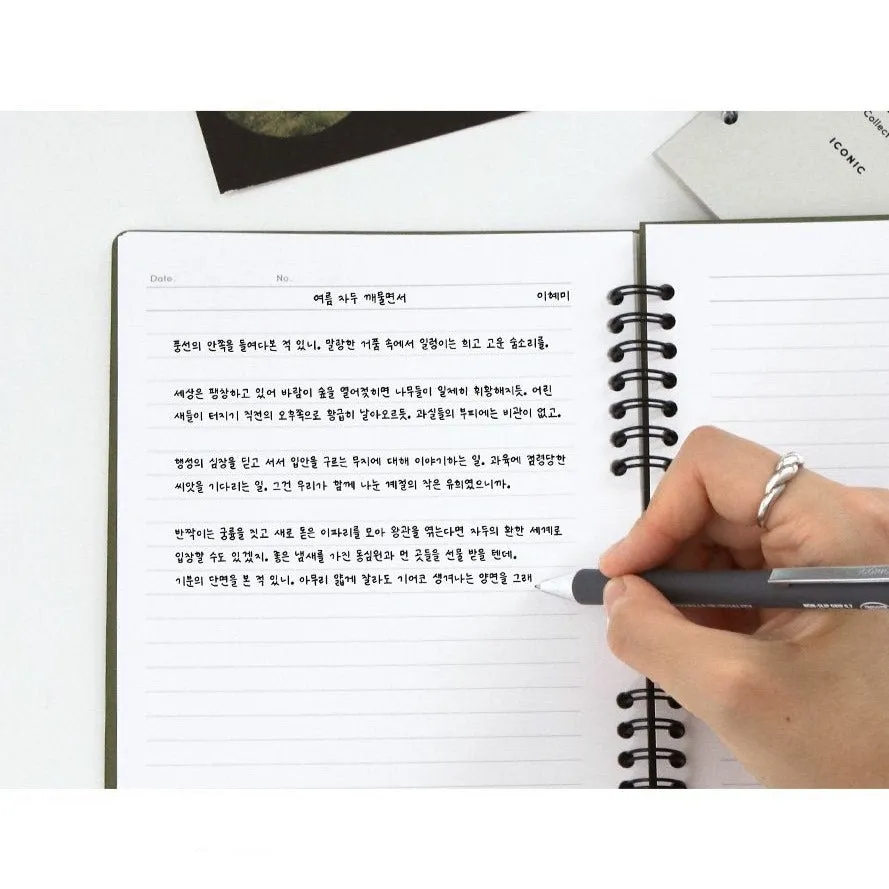 Collec
ICONIC
Date. No.
여름 자두 깨물면서 이혜미
풍선의 안쪽을 들여다본 적 있니. 말랑한 거품 속에서 일렁이는 희고 고운 숨소리를.
세상은 팽창하고 있어 바람이 숲을 열어젖히면 나무들이 일제히 휘황해지듯. 어린
새들이 터지기 직전의 오후쪽으로 황급히 날아오르듯. 과실들의 부피에는 비관이 없고.
행성의 심장을 딛고 서서 입안을 구르는 무지에 대해 이야기하는 일. 과육에 점령당한
씨앗을 기다리는 일. 그건 우리가 함께 나눈 계절의 작은 유희였으니까.
반짝이는 궁륭을 짓고 새로 돋은 이파리를 모아 왕관을 엮는다면 자두의 환한 세계로
입장할 수도 있겠지. 좋은 냄새를 가진 동심원과 먼 곳들을 선물 받을 텐데.
기분의 단면을 본 적 있니. 아무리 얇게 잘라도 기어코 생겨나는 양면을 그래